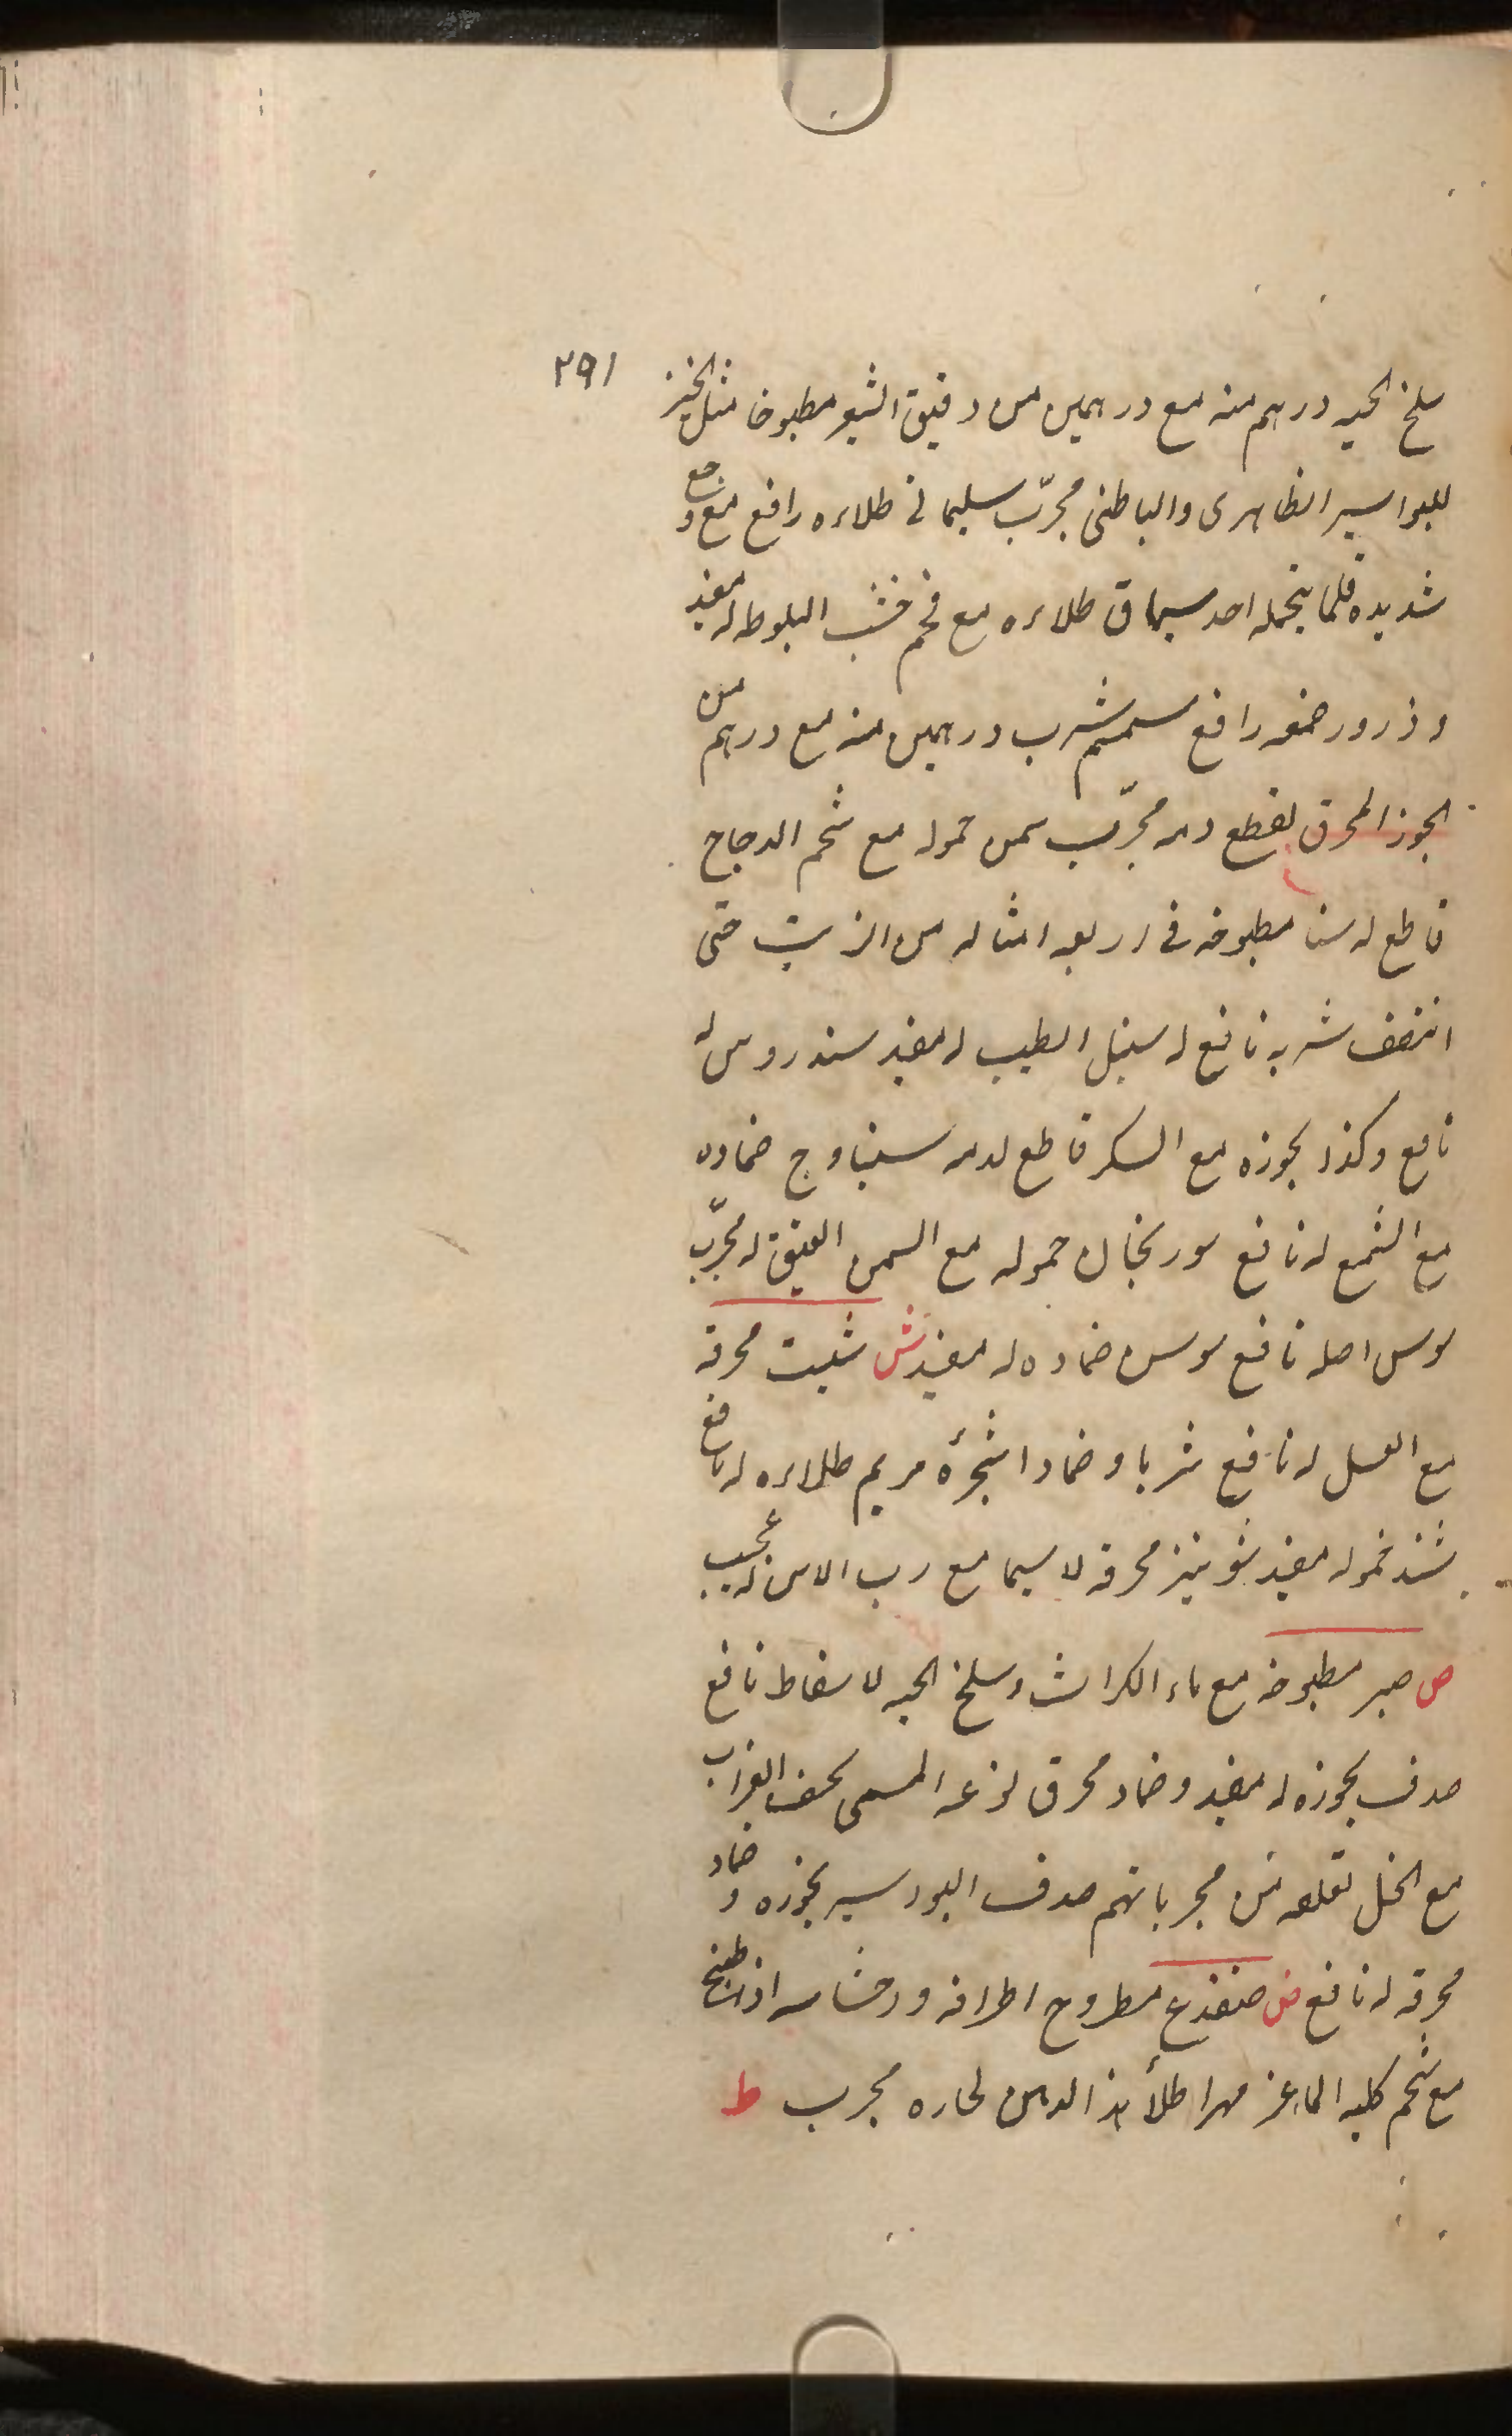 ٢٩١
سلخ الحيه درهم منه مع درهمين من دقيق الشعير مطبوخا مثل الخبز
للبواسير الظاهرى والباطنى مجرّب سليمانى طلاءه رافع مع وجع
شديده قلما يتحمله احد سماق طلاءه مع فحم خشب البلوط له مفيد
وذرور صمغه رافع سمسم شرب درهمين منه مع درهم من
الجوز المحرق لقطع دمه مجرّب سمن حموله مع شحم الدجاج
قاطع له سنا مطبوخه فى اربعه امثاله من الزيت حتى
انتصف شربه نافع له سنبل الطيب له مفيد سندروس له
نافع وكذا بخوره مع السكر قاطع لدمه سنباوج ضماده
مع الشمع له نافع سورنجان حموله مع السمن العتيق له مجرّب
سوس اصله نافع سوسن ضماده له مفيد ش شبت محرقه
مع العسل له نافع شربا وضمادا شجرة مريم طلاءه له نافع
حموله مفيد شونيز محرقه لا سيما مع رب الاس له عجيب
ص صبر مطبوخه مع ماء الكراث وسلخ الحيه لاسقاط نافع
صدف بخوره له مفيد وضماد محرق نوعه المسمى بخف الغراب
مع الخل لقلعه من مجرباتهم صدف البواسير بخوره وضماد
محرقه له نافع ض ضفدع مطروح اطرافه واحشاءه اذا طبخ
مع شحم كليه الماعز مهرا طلأ هذا الدهن لحاره مجرب ط